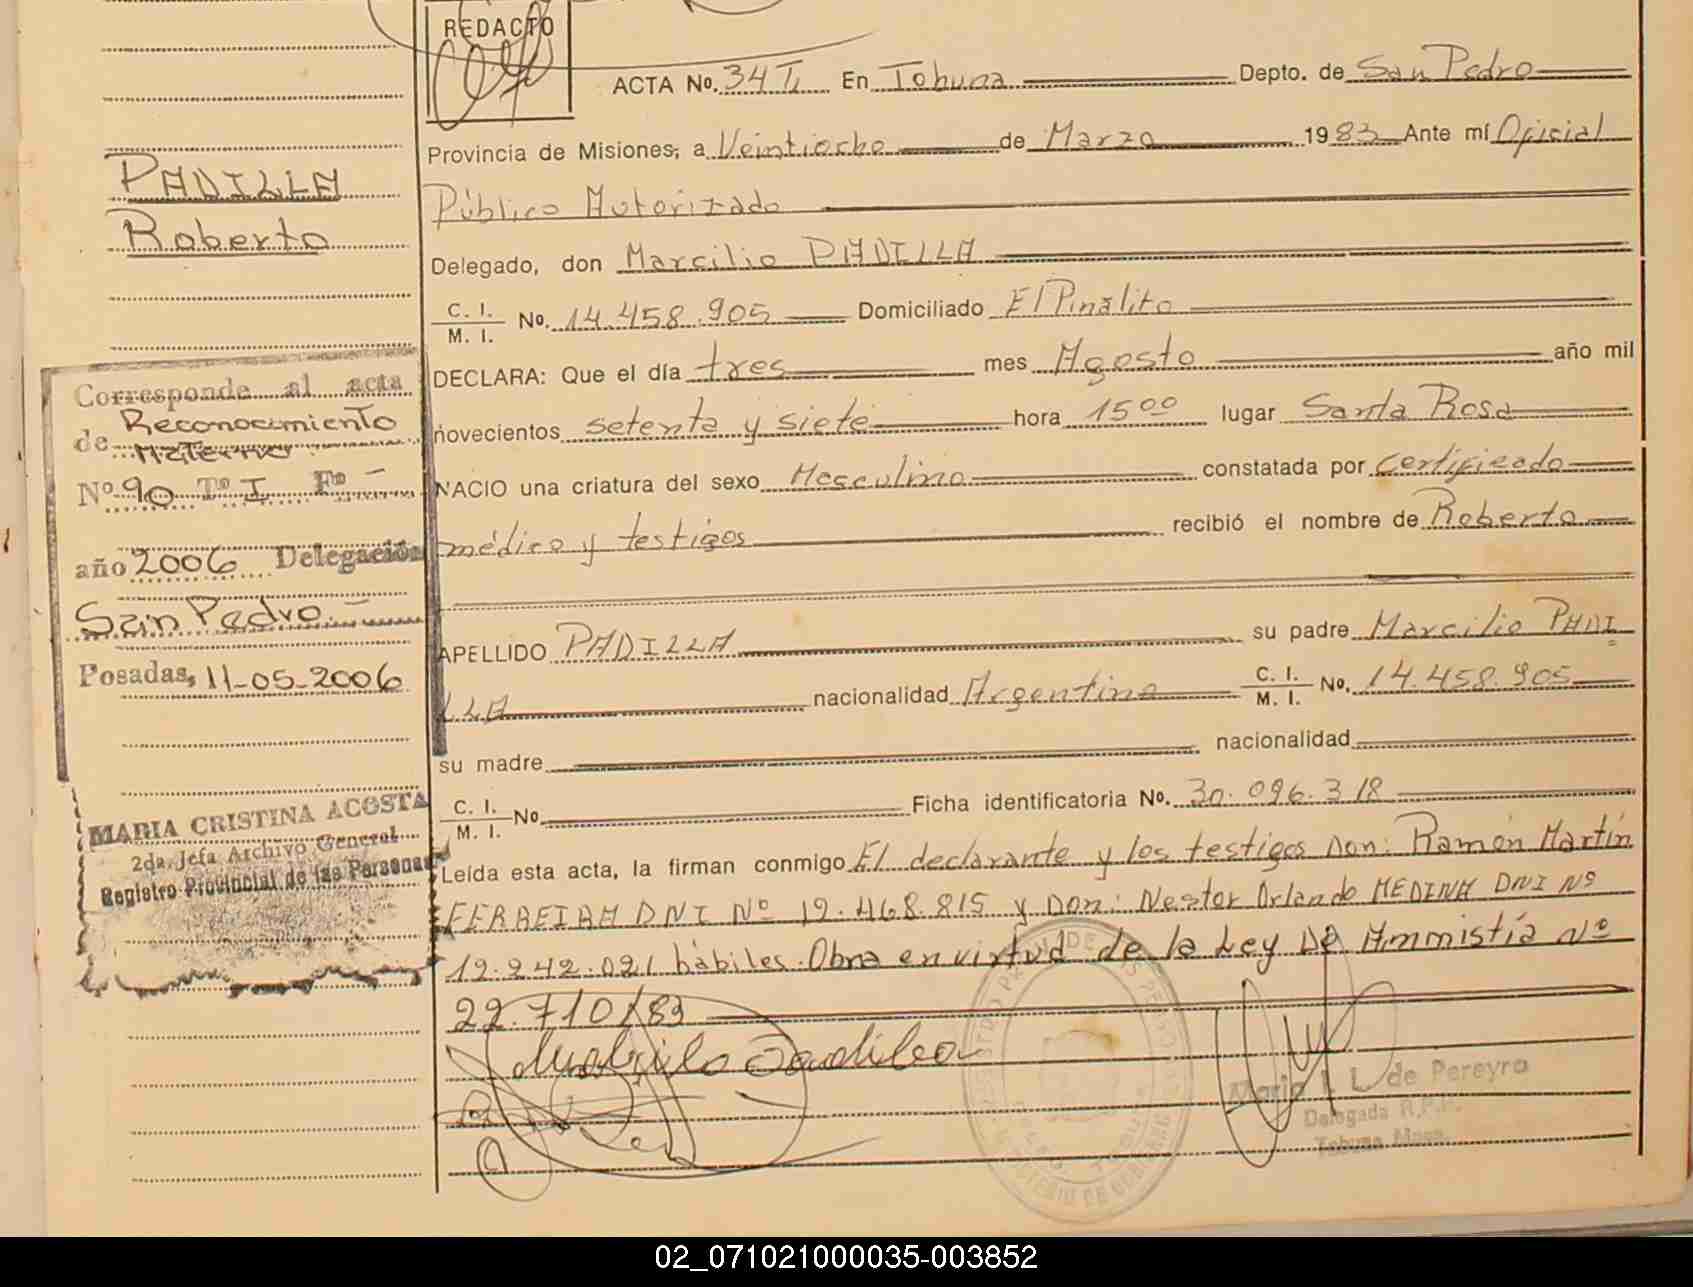 REDACTO
ACTA No. 34 TI En Tobuna Depto. de San Pedro
Provincia de Misiones, a Veintiocho de Marzo 1983 Ante mí Oficial
Público Autorizado
Delegado, don Marcilio PADILLA
C. I.
M. I. No. 14.458.905 Domiciliado El Pinalito
DECLARA: Que el día tres mes Agosto año mil
novecientos setenta y siete hora 15 00 lugar Santa Rosa
NACIO una criatura del sexo Masculino constatada por certificado
médico y testigos recibió el nombre de Roberto
APELLIDO PADILLA su padre Marcilio PADI
LLA nacionalidad Argentina C. I. M. I. No. 14.458.905
su madre nacionalidad
C. I.
M. I. No Ficha identificatoria No. 30.096.318
Leída esta acta, la firman conmigo El declarante y los testigos Don: Ramón Martín
FERREIRA DNI Nº 12.468.815 y Don: Nestor Orlando MEDINA DNI Nº
12.242.021 hábiles. Obra en virtud de la Ley De Ammistía Nº
22.710/83
Maria I. L. de Pereyra
Delegada R.P.P.
Tobuna Mnes.
PADILLA
Roberto
Corresponde al acta
de Reconocimiento
Materno
Nº 90 Tº I Fº -
año 2006 Delegación
San Pedro.-
Posadas, 11-05-2006
MARIA CRISTINA ACOSTA
2da. Jefa Archivo General
Registro Provincial de las Personas
02_071021000035-003852